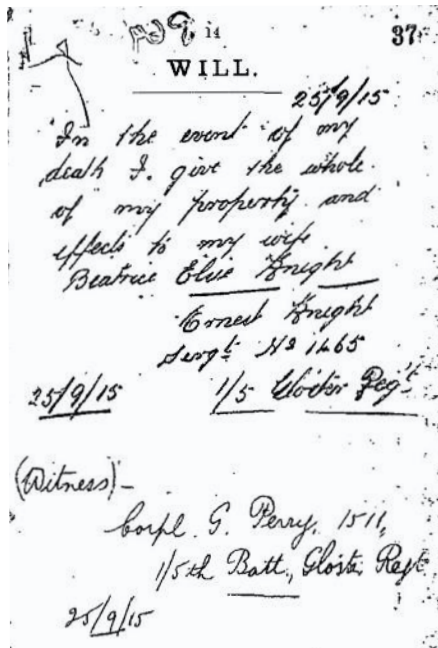 14
37
WILL.
25/9/15
In the event of my
death I give the whole
of my property and
effects to my wife
Beatrice Elsie Knight
Ernest Knight
Sergt. No 1465
25/9/15 1/5 Gloster Regt.
(Witness)-
Corpl. G. Perry, 1511,
1/5th Batt., Gloster Regt
25/9/15